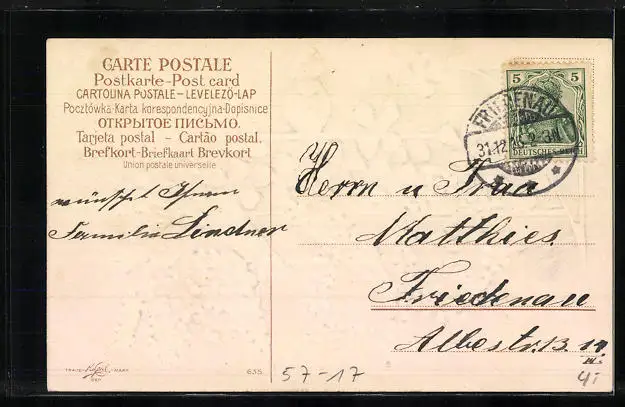 CARTE POSTALE
Postkarte-Post card
CARTOLINA POSTALE-LEVELEZŐ-LAP
Pocztówka-Karta korespondencyjna-Dopisnice
ОТКРЫТОЕ ПИСЬМО.
Tarjeta postal - Cartão postal.
Brefkort-Briefkaart Brevkort
Union postale universelle
wünscht Ihnen
Familie Lindner
5 5
DEUTSCHES REICH
FRIEDENAU
31.12.
Herrn u Frau
Matthies
Friedenau
Albestr. 13
III.
TRADE MARK
635
57-17